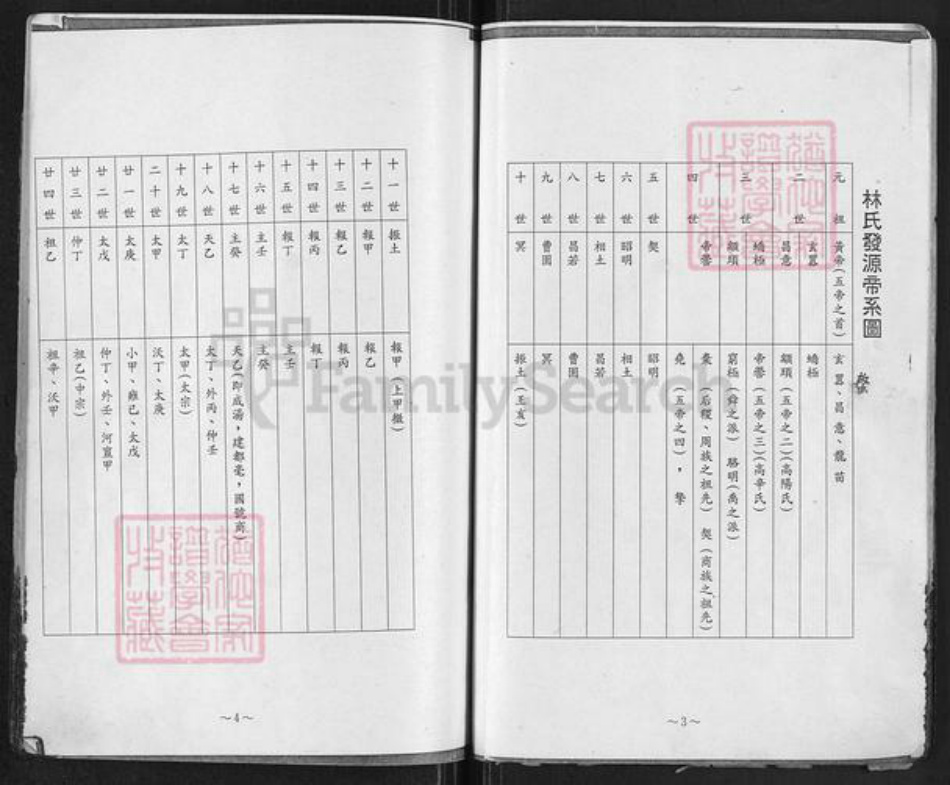 林氏發源帝系圖
元祖 黃帝(五帝之首) 玄囂、昌意、龍苗
二世 玄囂 蟜極
昌意 顓頊(五帝之二)(高陽氏)
三世 蟜極 帝嚳(五帝之三)(高辛氏)
顓頊 窮極(舜之派) 駱明(禹之派)
四世 帝嚳 棄(后稷、周族之祖先) 契(商族之祖先)
堯(五帝之四),摯
五世 契 昭明
六世 昭明 相土
七世 相土 昌若
八世 昌若 曹圉
九世 曹圉 冥
十世 冥 振土(王亥)
~3~
十一世 振土 報甲(上甲微)
十二世 報甲 報乙
十三世 報乙 報丙
十四世 報丙 報丁
十五世 報丁 主壬
十六世 主壬 主癸
十七世 主癸 天乙(即成湯,建都亳,國號商)
十八世 天乙 太丁、外丙、仲壬
十九世 太丁 太甲(太宗)
二十世 太甲 沃丁、太庚
廿一世 太庚 小甲、雍已、太戊
廿二世 太戊 仲丁、外壬、河亶甲
廿三世 仲丁 祖乙(中宗)
廿四世 祖乙 祖辛、沃甲
~4~
FamilySearch